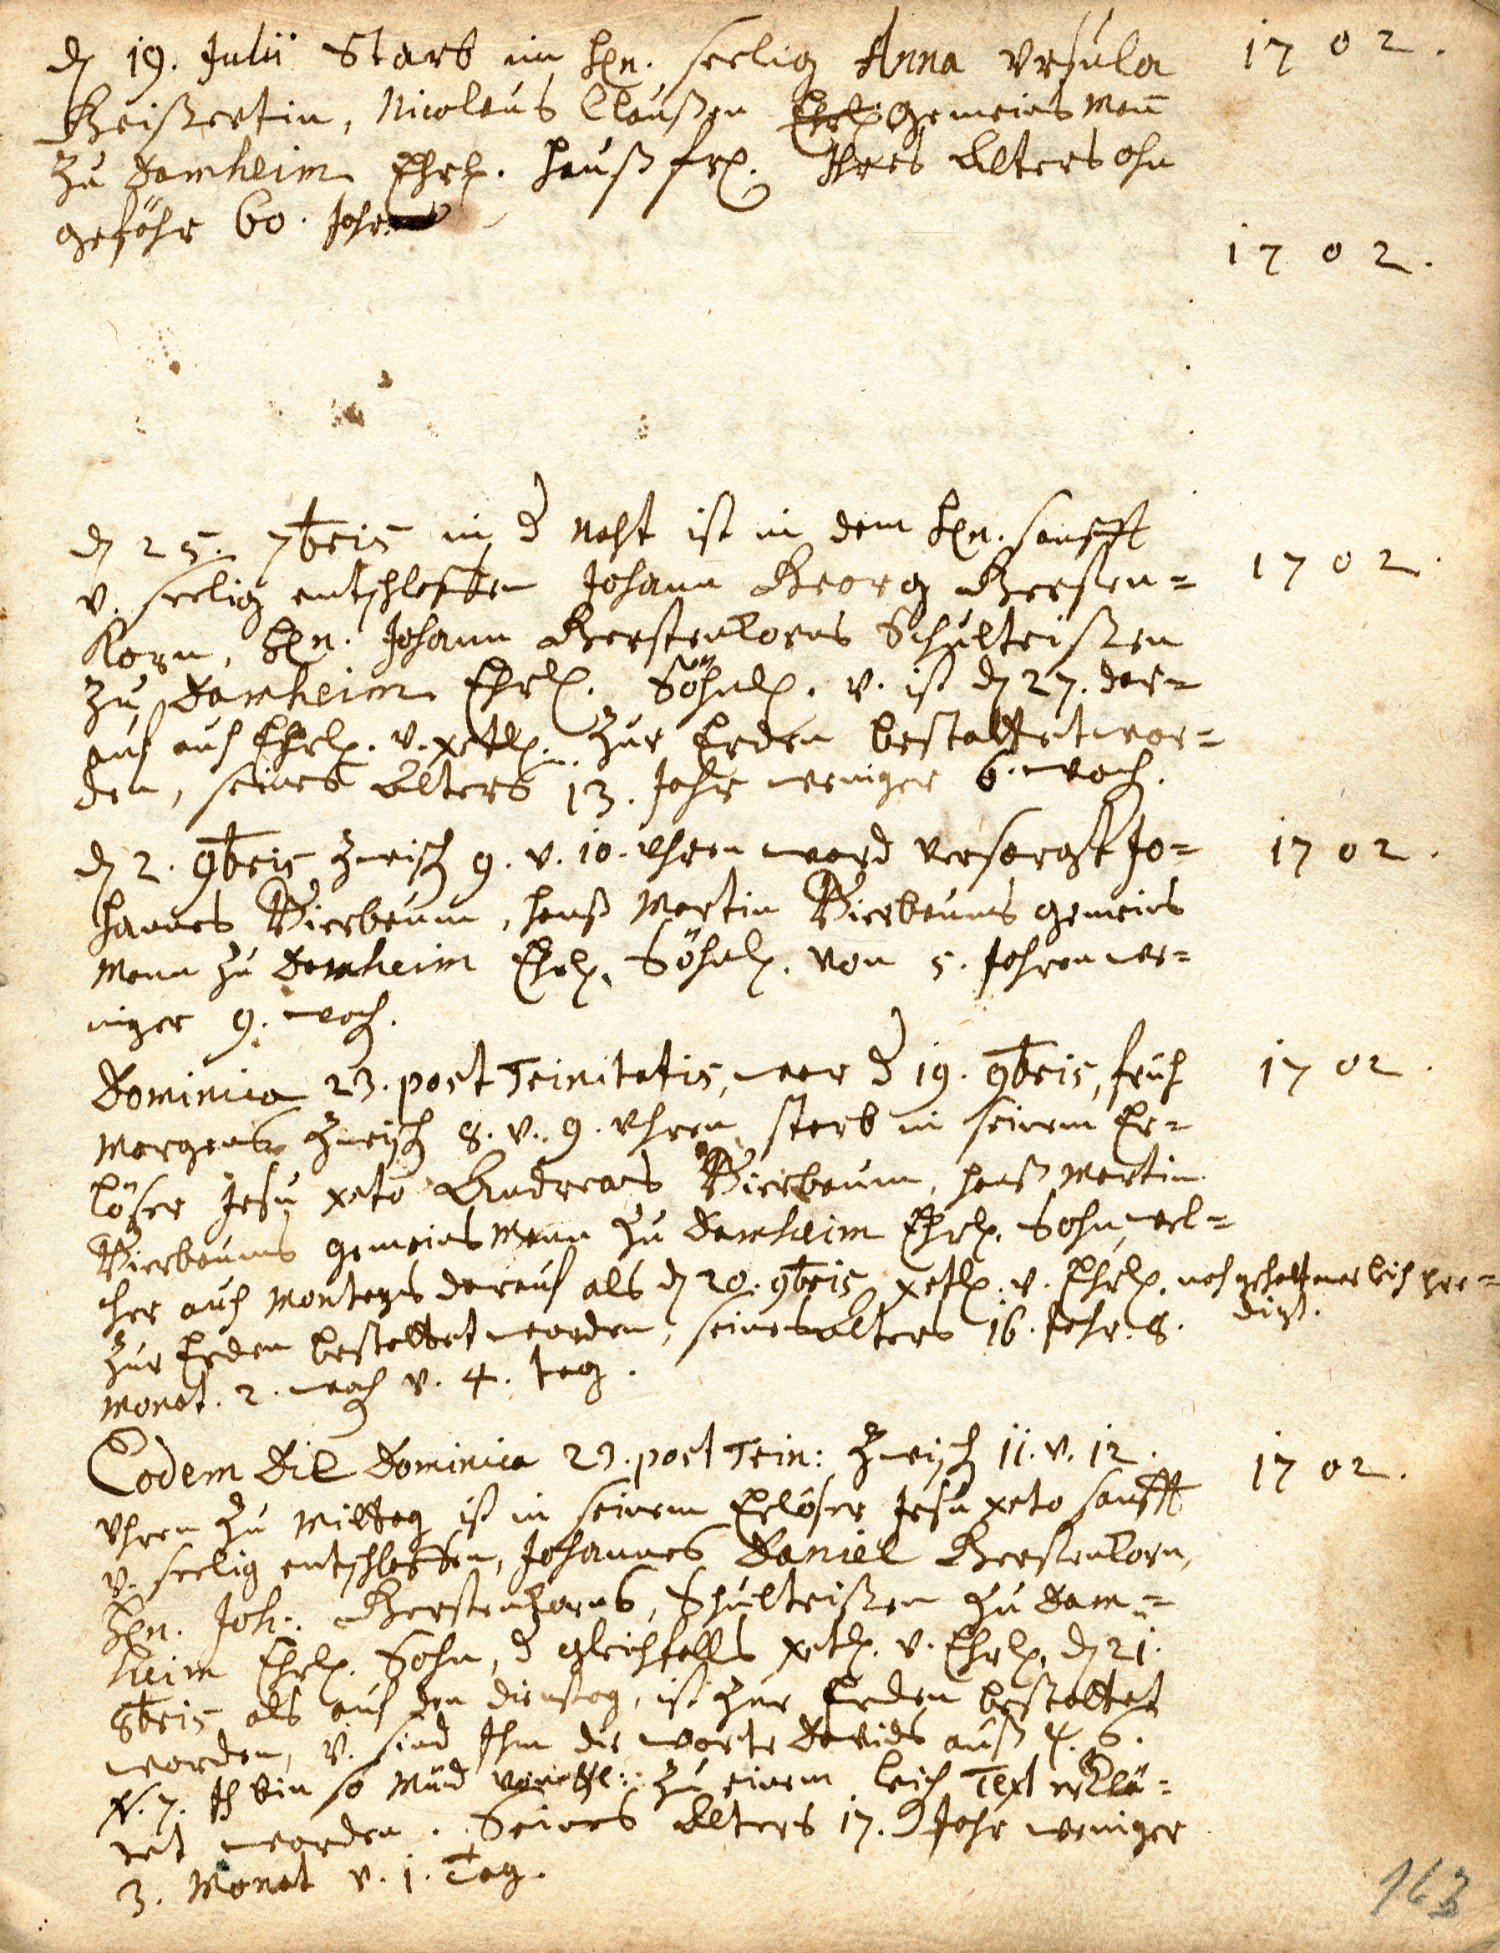 d 19. Julii Starb im hℓn. seelig Anna Ursula
1702.
Geißertin, Nicolaus Claußen gemeins Mañ
zu Damheim Ehrl. haußfr. Ihres Alters ohn
gefähr 60. Jahr
1702.
d 25. 7bris in d Nacht ist in dem hℓn. sanfft
v. seelig entschlaffen Johann Georg Gersten=
1702.
Korn, hℓn. Johann Gerstenkorns Schulteißen
zu Damheim Ehrl. Söhnl. v. ist d 27. dar=
auf auch Ehrl. v. xstl. zur Erden bestattet wor=
den, seines Alters 13. Jahr weniger 6. woch.
d 2. 9bris zwisch 9. v. 10. Uhren ward versorgt Jo=
1702.
hannes Bierbaum, hanß Martin Bierbaums gemeins
Mann zu Damheim Ehrl. Söhnl. von 5. Jahren we=
niger 9. woch.
Dominica 23. post Trinitatis, war d 19. 9bris, früh
1702.
Morgens zwisch 8. v. 9. Uhren starb in seinem Er=
löser Jesu xsto Andreas Bierbaum, hanß Martin
Bierbaums gemeins Mann zu Damheim Ehrl. Sohn, wel=
cher auch Montags darauf als d 20. 9bris xstl. v. Ehrl. nach gehaltener leich pre=
digt.
zur Erden bestattet worden, seines Alters 16. Jahr. 8.
Monat. 2. woch v. 4. tag.
Eodem Die Dominica 23. post Trin: zwisch 11. v. 12.
1702.
Uhren zu Mittag ist in seinem Erlöser Jesu xsto sanfft
v. seelig entschlaffen, Johannes Daniel Gerstenkorn,
hℓn. Joh: Gerstenkorns, Schulteißen zu Dam=
heim Ehrl. Sohn, d gleichfalls xstl. v. Ehrl. d 21.
9bris als auf den dienstag, ist zur Erden bestattet
worden, v. sind Ihm die worte Davids auß ψ. 6.
v. 7. Ich bin so müd zu einem leich Text erklä=
ret worden. Seines Alters 17. Jahr weniger
3. Monat v. 1. Tag.
163